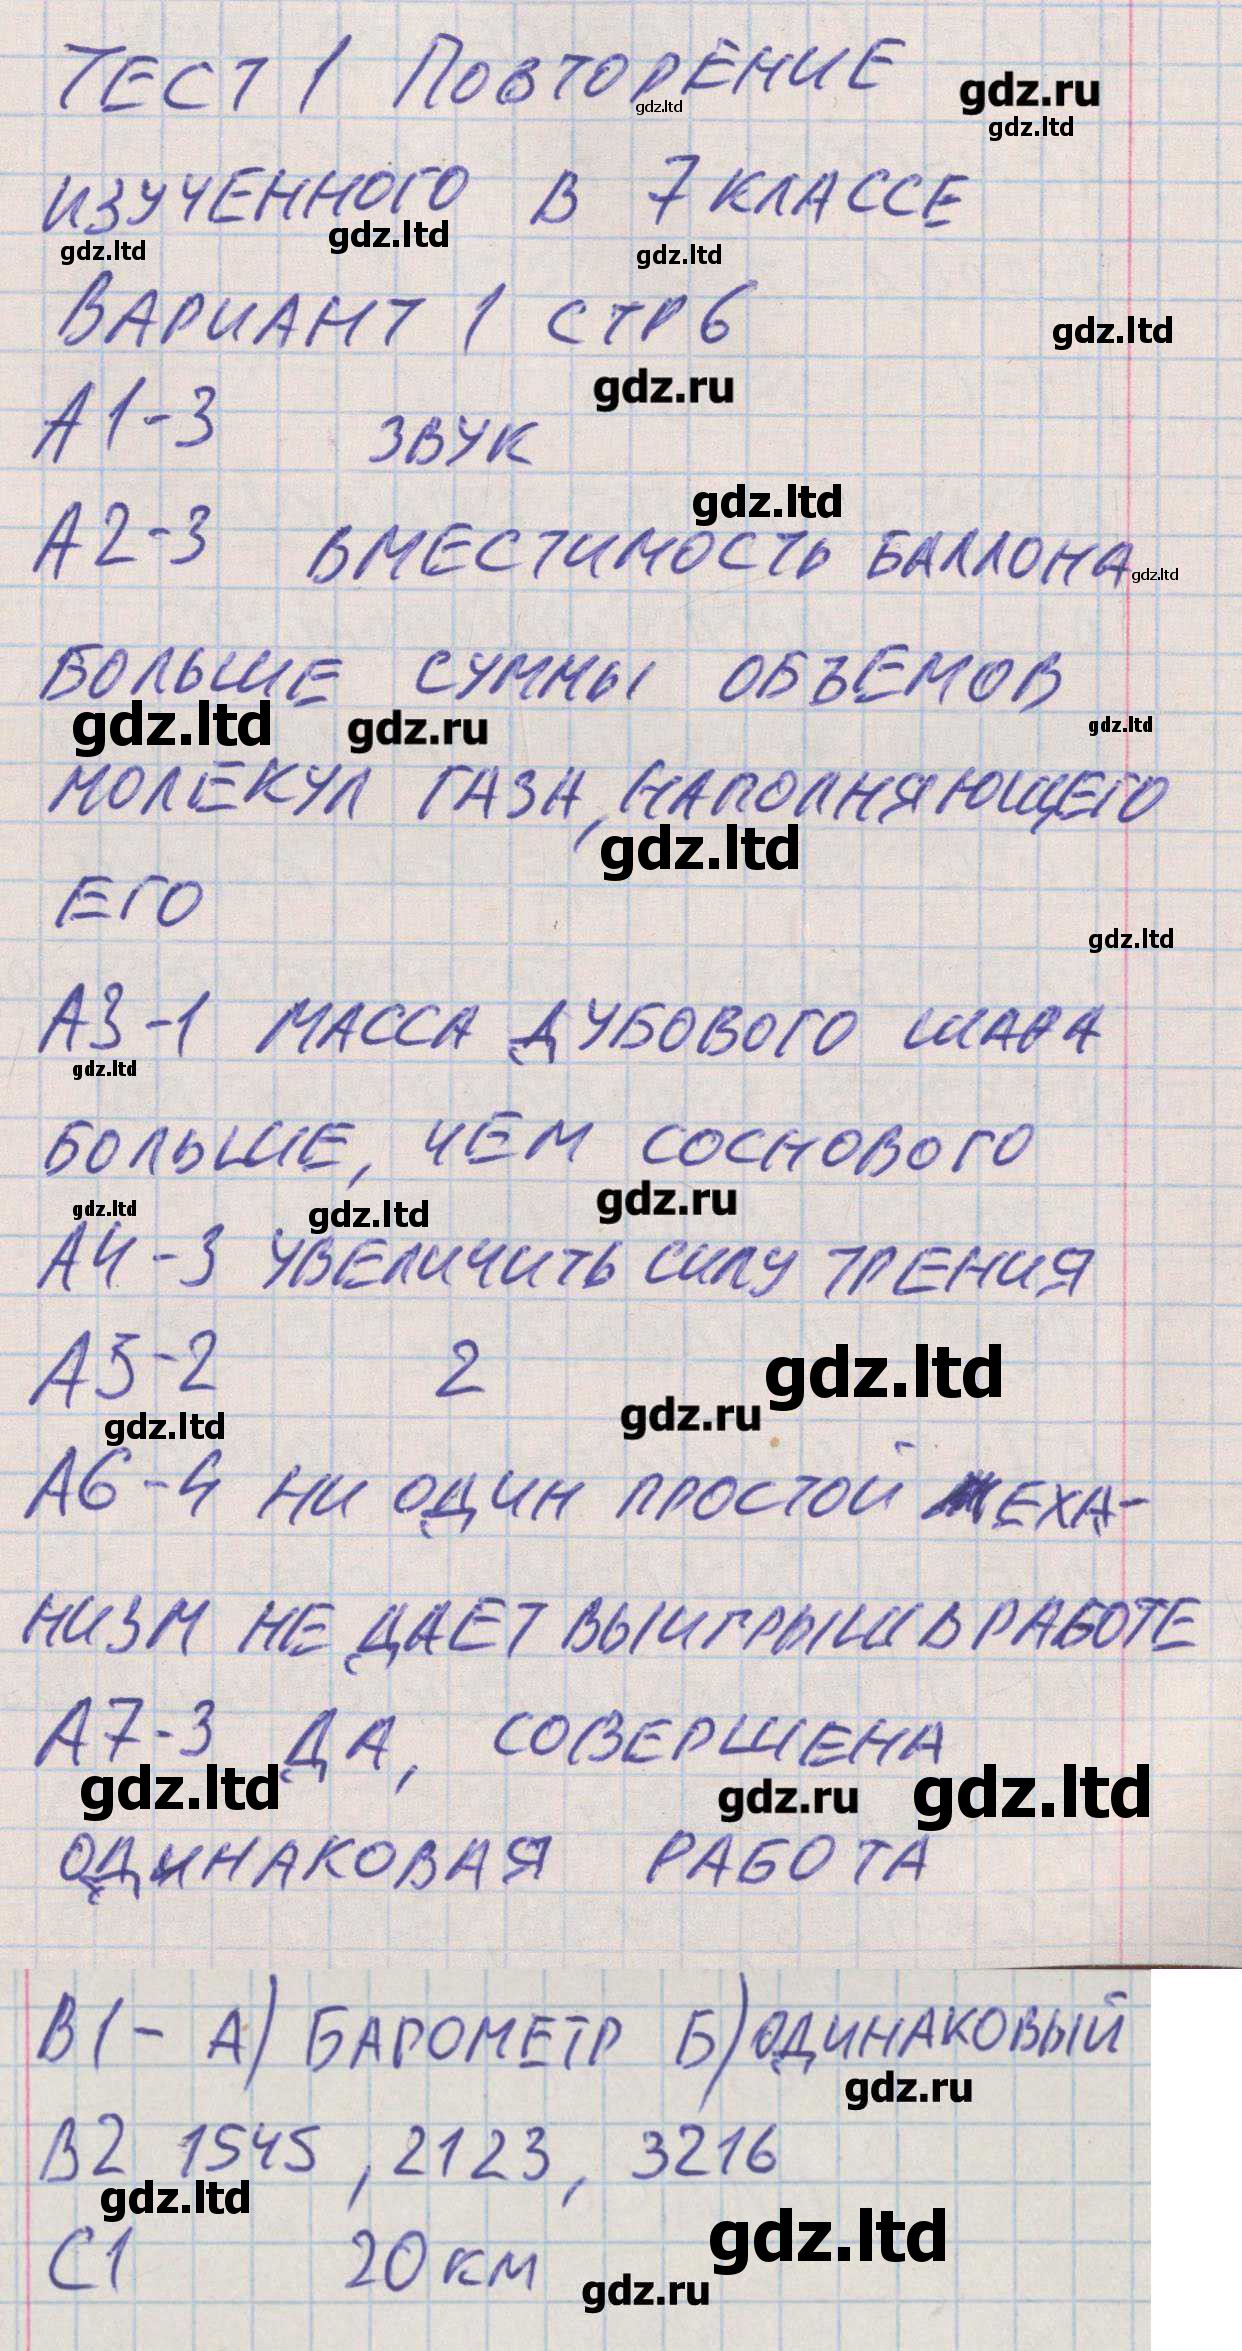 ТЕСТ 1 ПОВТОРЕНИЕ
gdz.ru
gdz.ltd
gdz.ltd
ИЗУЧЕННОГО В 7 КЛАССЕ
gdz.ltd
gdz.ltd
gdz.ltd
ВАРИАНТ 1 СТР 6
gdz.ltd
gdz.ru
А1-3 ЗВУК
gdz.ltd
А2-3 ВМЕСТИМОСТЬ БАЛЛОНА
gdz.ltd
БОЛЬШЕ СУММЫ ОБЪЕМОВ
gdz.ltd
gdz.ru
gdz.ltd
МОЛЕКУЛ ГАЗА, НАПОЛНЯЮЩЕГО
gdz.ltd
ЕГО
gdz.ltd
А3-1 МАССА ДУБОВОГО ШАРА
gdz.ltd
БОЛЬШЕ, ЧЕМ СОСНОВОГО
gdz.ltd
gdz.ltd
gdz.ru
А4-3 УВЕЛИЧИТЬ СИЛУ ТРЕНИЯ
А5-2 2
gdz.ltd
gdz.ltd
gdz.ru
А6-4 НИ ОДИН ПРОСТОЙ МЕХА-
НИЗМ НЕ ДАЕТ ВЫИГРЫШ В РАБОТЕ
А7-3 ДА, СОВЕРШЕНА
gdz.ltd
gdz.ru
gdz.ltd
ОДИНАКОВАЯ РАБОТА
В1- А) БАРОМЕТР Б) ОДИНАКОВЫЙ
gdz.ru
В2 1545, 2123, 3216
gdz.ltd
gdz.ltd
С1 20 КМ
gdz.ru